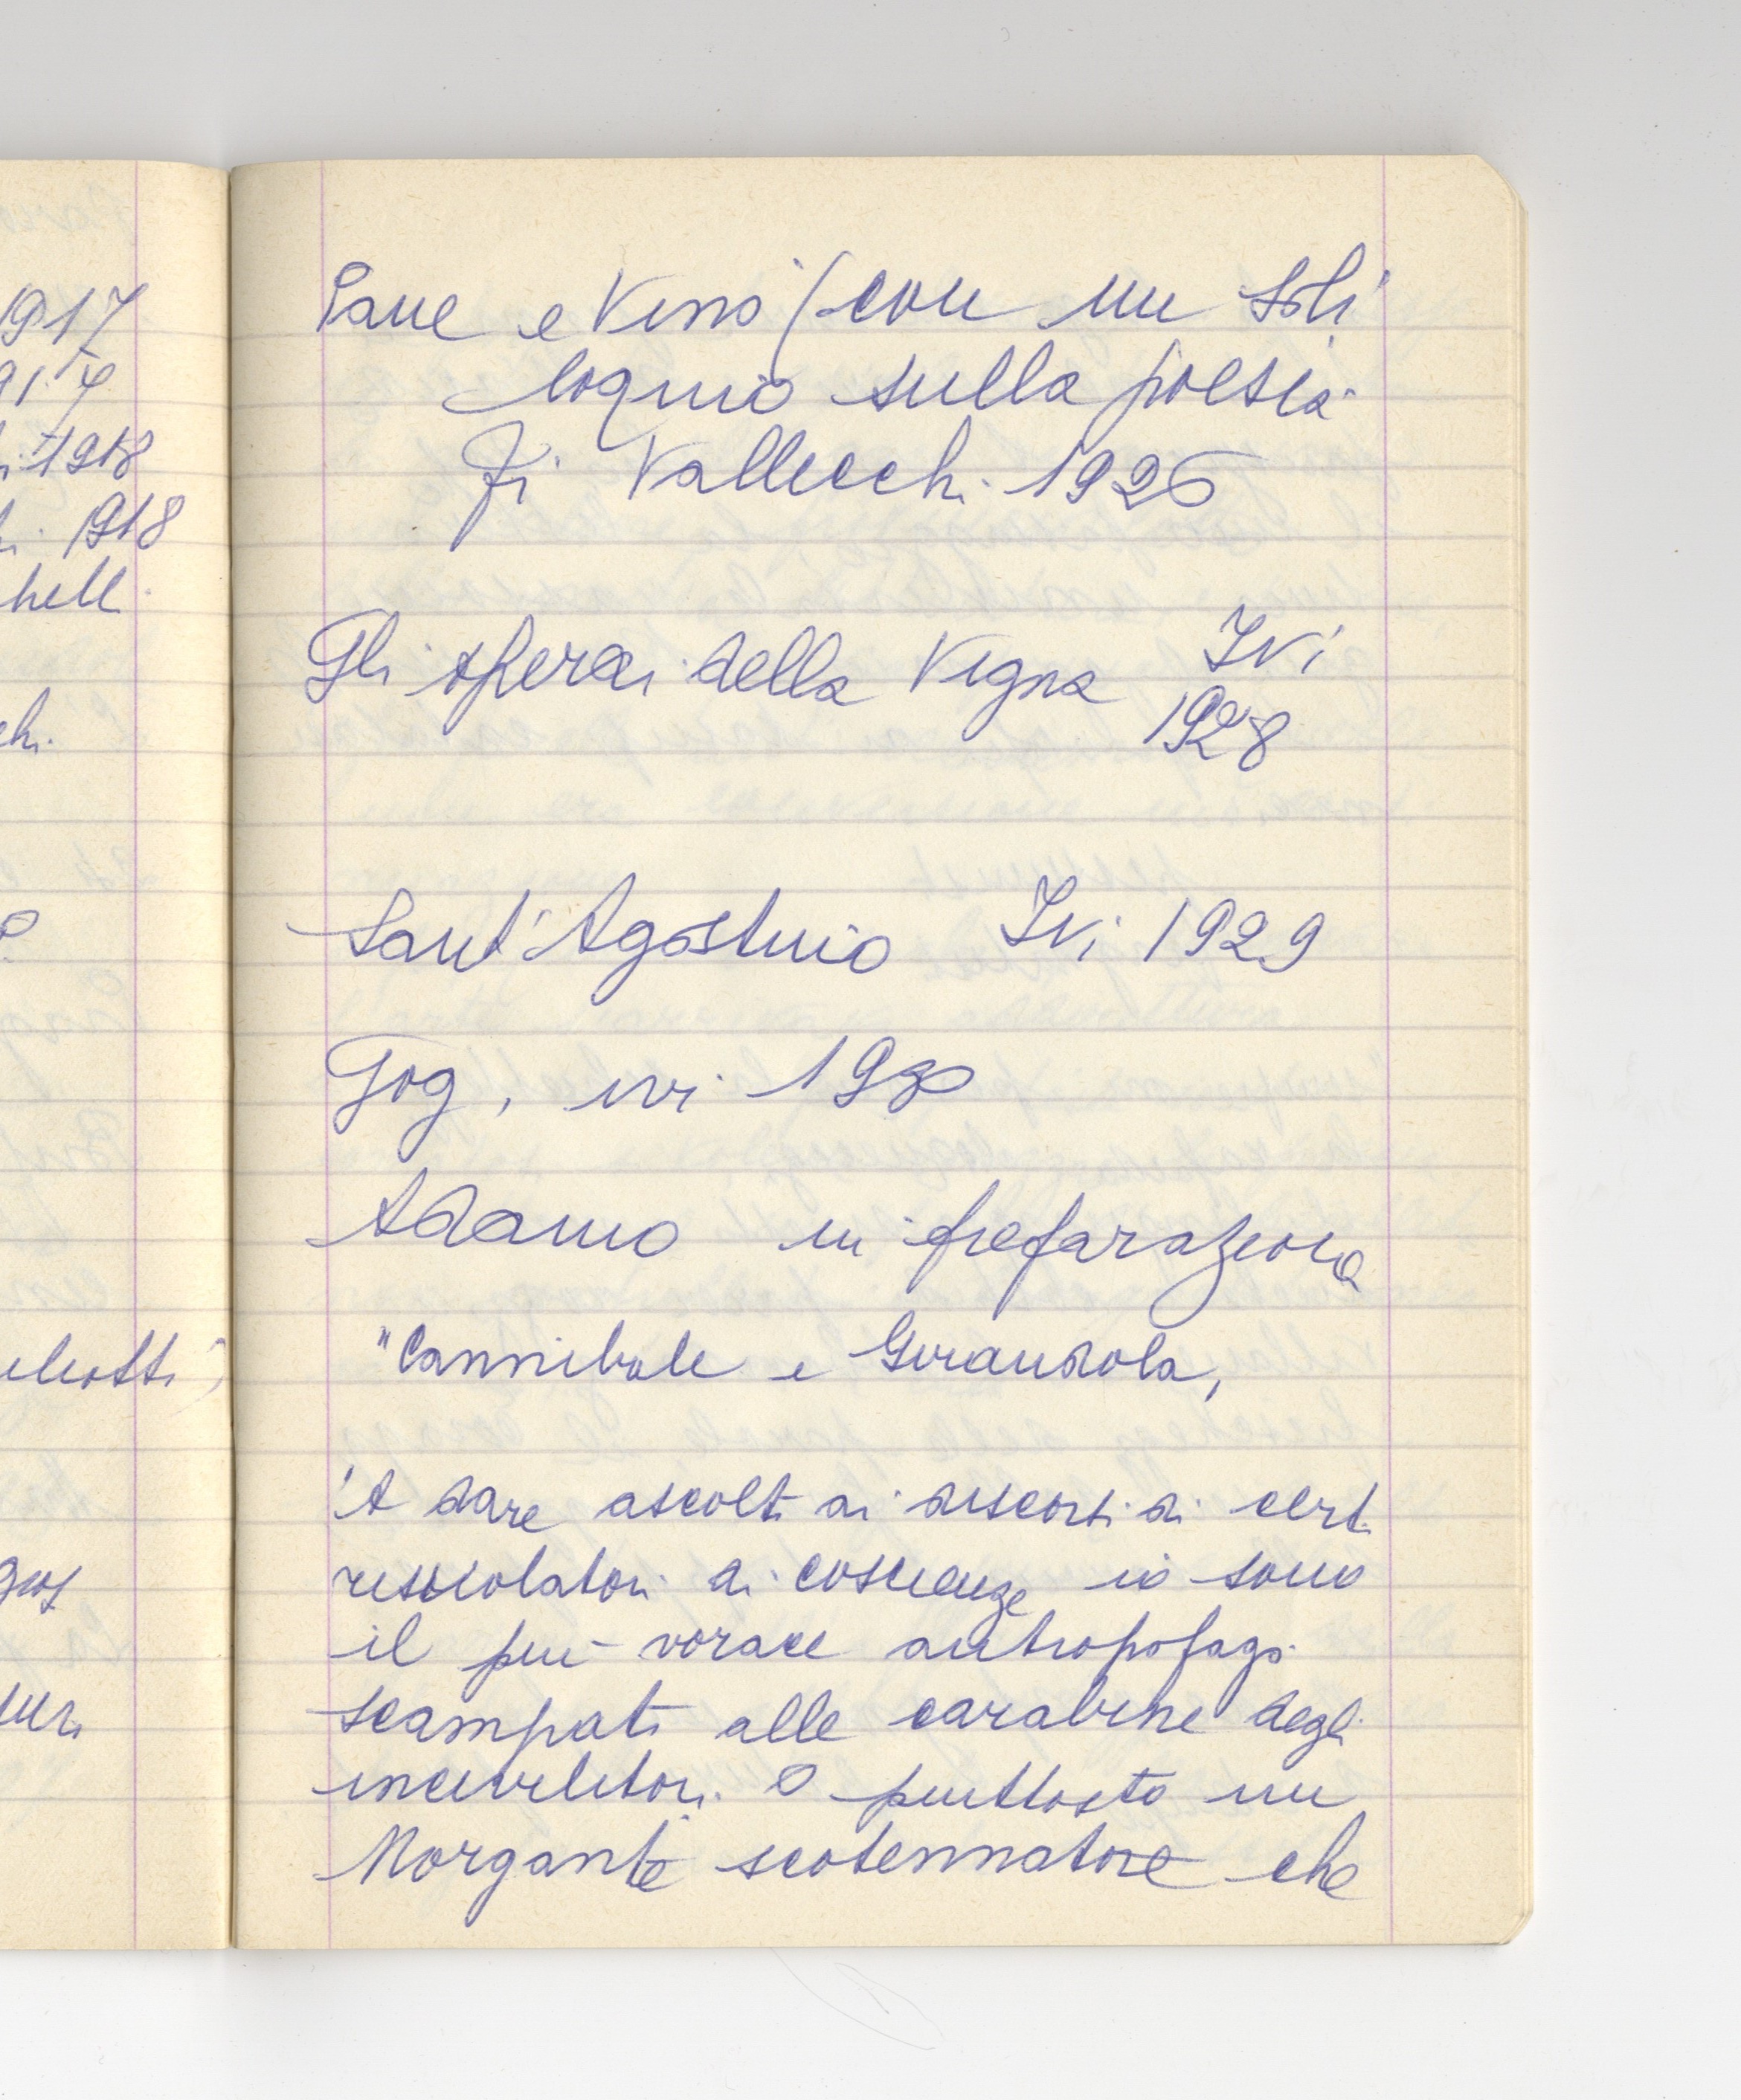 1917
1917
1918
1918
chi.
Pane e Vino (con un Soli
loquio sulla poesia
Fi Vallecchi 1926
Gli operai della Vigna Ivi
1928
Sant'Agostino Ivi 1929
Gog, ivi 1930
Adamo in preparazione
"Cannibale e Girandola,
'A dare ascolto ai discorsi di certi
risciolatori di coscienze io sono
il più vorace antropofago
scampato alle carabine degli
incivilitori. O piuttosto un
Morgante scotennatore che